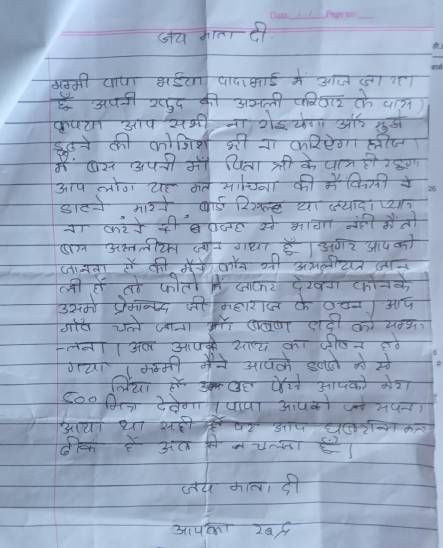 जय माता दी
मम्मी पापा भईया पापा भाई मैं आज जा रहा
हूँ अपनी खुद की असली परिवार के पास
कृपया आप सभी ना और मुझे
ढूढने की कोशिश भी ना करिऐगा
मैं बस अपनी माँ पिता श्री के पास ही रहुगा
आप लोग यह मत सोचना की मैं किसी के
डाटने मारने बोर्ड रिसल्ट या ज्यादा प्यार
ना करने की वजह से भागा नही मैं तो
बस असलीयत जान गया हूँ। अगर आप को
जानना हो की मैंने कौन सी असलीयत जान
ली है तो फोटो में जाकर देखना
उसमे प्रेमानन्द जी महाराज के वचन। आप
चले जाना
अब आपके साथ का जीवन हो
गया। मम्मी मैंने आपके में से
500 लिया हूँ वह पैसे आपको मेरा
मित्र देदेगा। पापा आपको जो सपना
आया था सही है पर आप घबराना मत
ठीक है अब मैं चलता हूँ।
जय माता दी
आपका